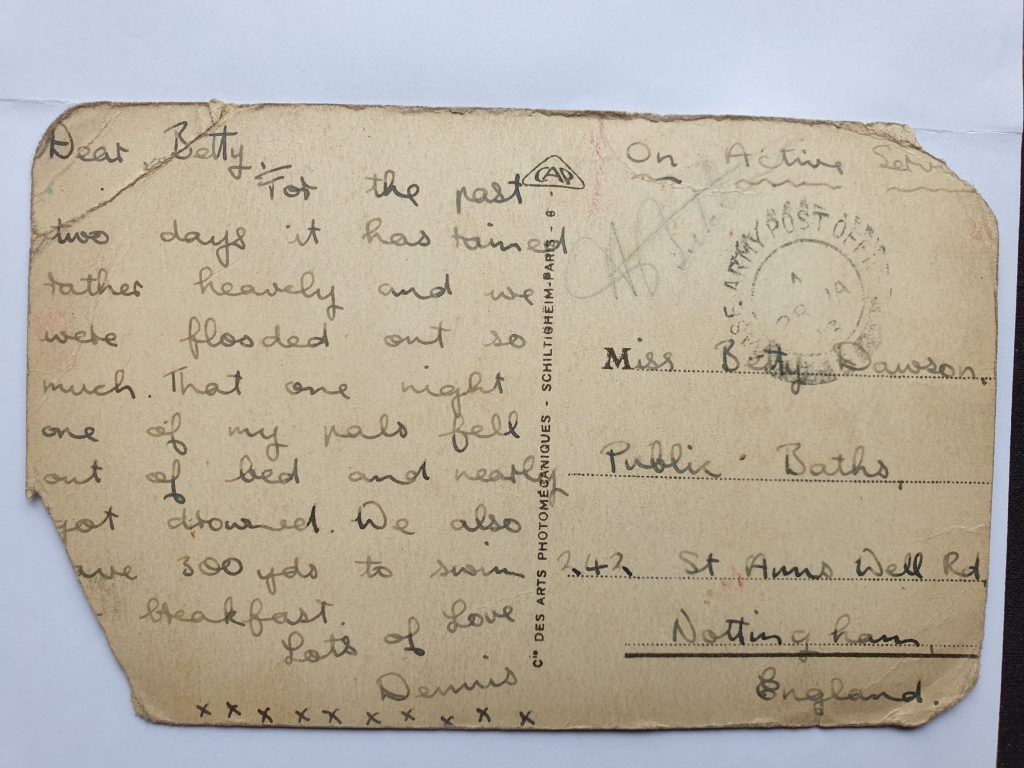 Dear Betty,
For the past
two days it has rained
rather heavely and we
were flooded out so
much. That one night
one of my pals fell
out of bed and nearly
got drowned. We also
300 yds to swim
breakfast.
Lots of Love
Dennis
x x x x x x x x x x
CAP
Cie DES ARTS PHOTOMÉCANIQUES - SCHILTIGHEIM-PARIS - 8 -
On Active
ARMY POST OFFI
Miss Betty Dawson.
Public Baths,
242 St Anns Well Rd
Nottingham,
England.